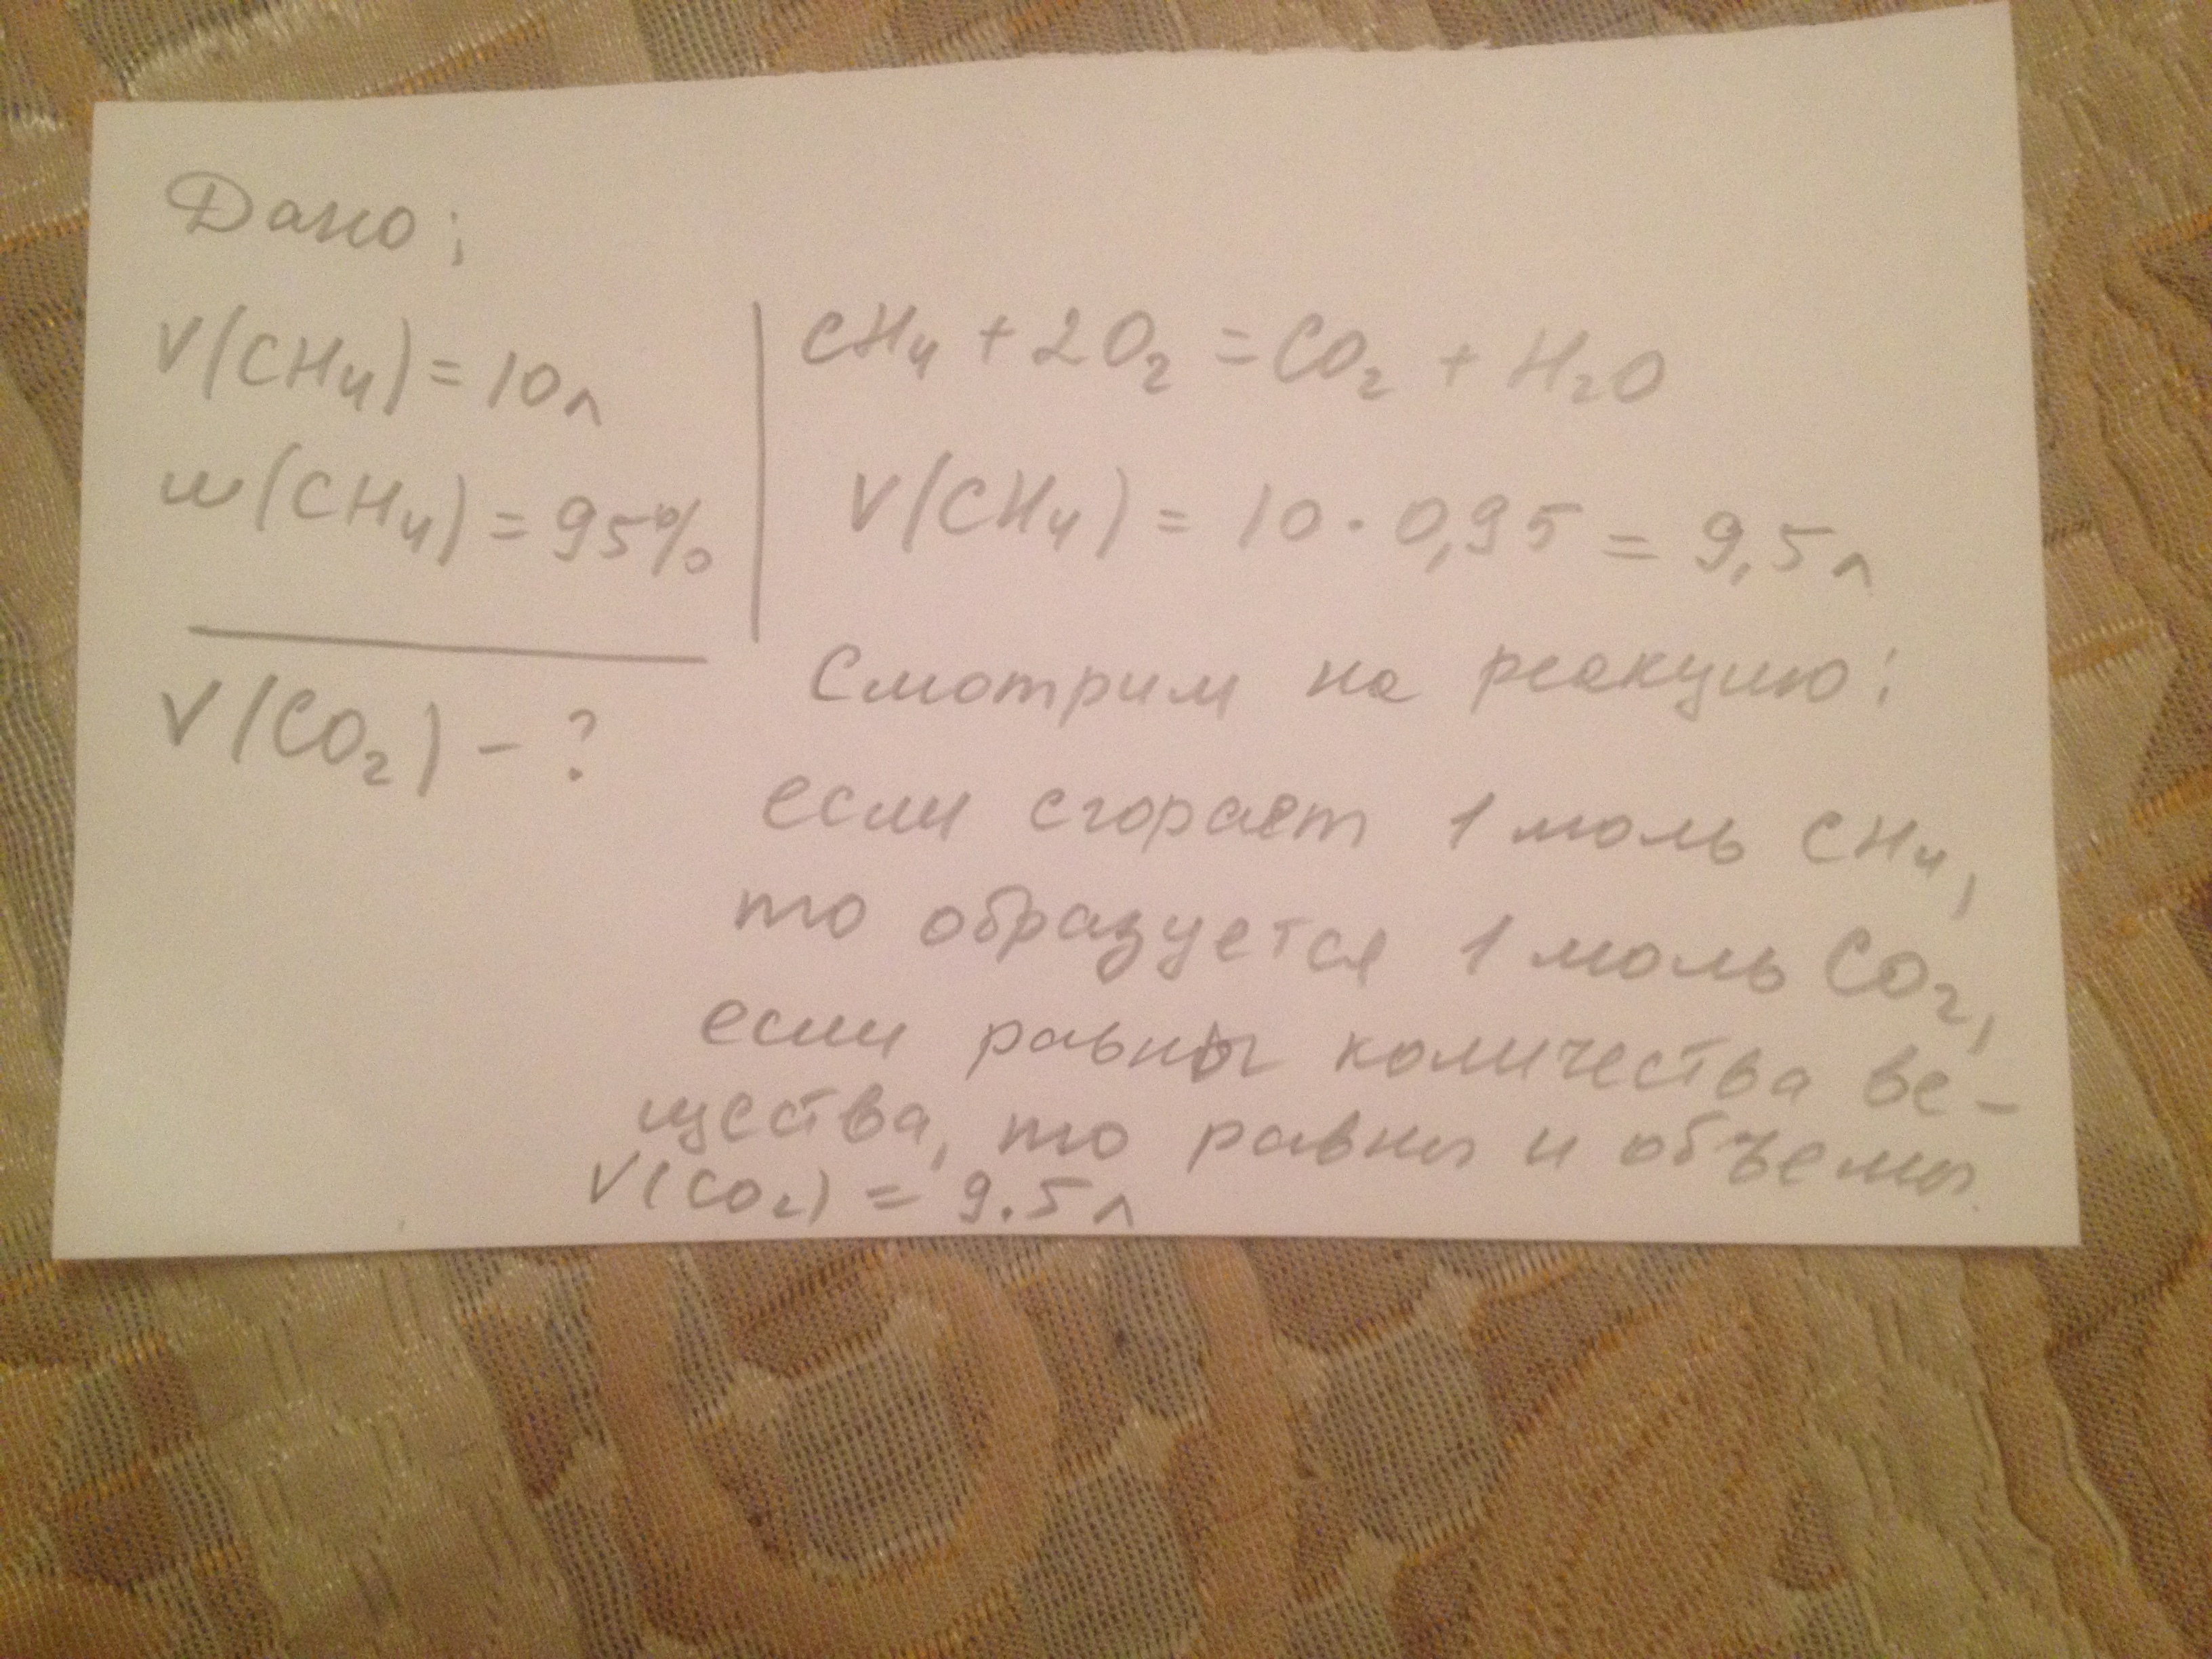 Дано:
V(CH₄) = 10л
w(CH₄) = 95%
V(CO₂) - ?
CH₄ + 2O₂ = CO₂ + H₂O
V(CH₄) = 10 · 0,95 = 9,5л
Смотрим на реакцию:
если сгорает 1 моль CH₄,
то образуется 1 моль CO₂,
если равны количества ве-
щества, то равны и объемы.
V(CO₂) = 9.5л